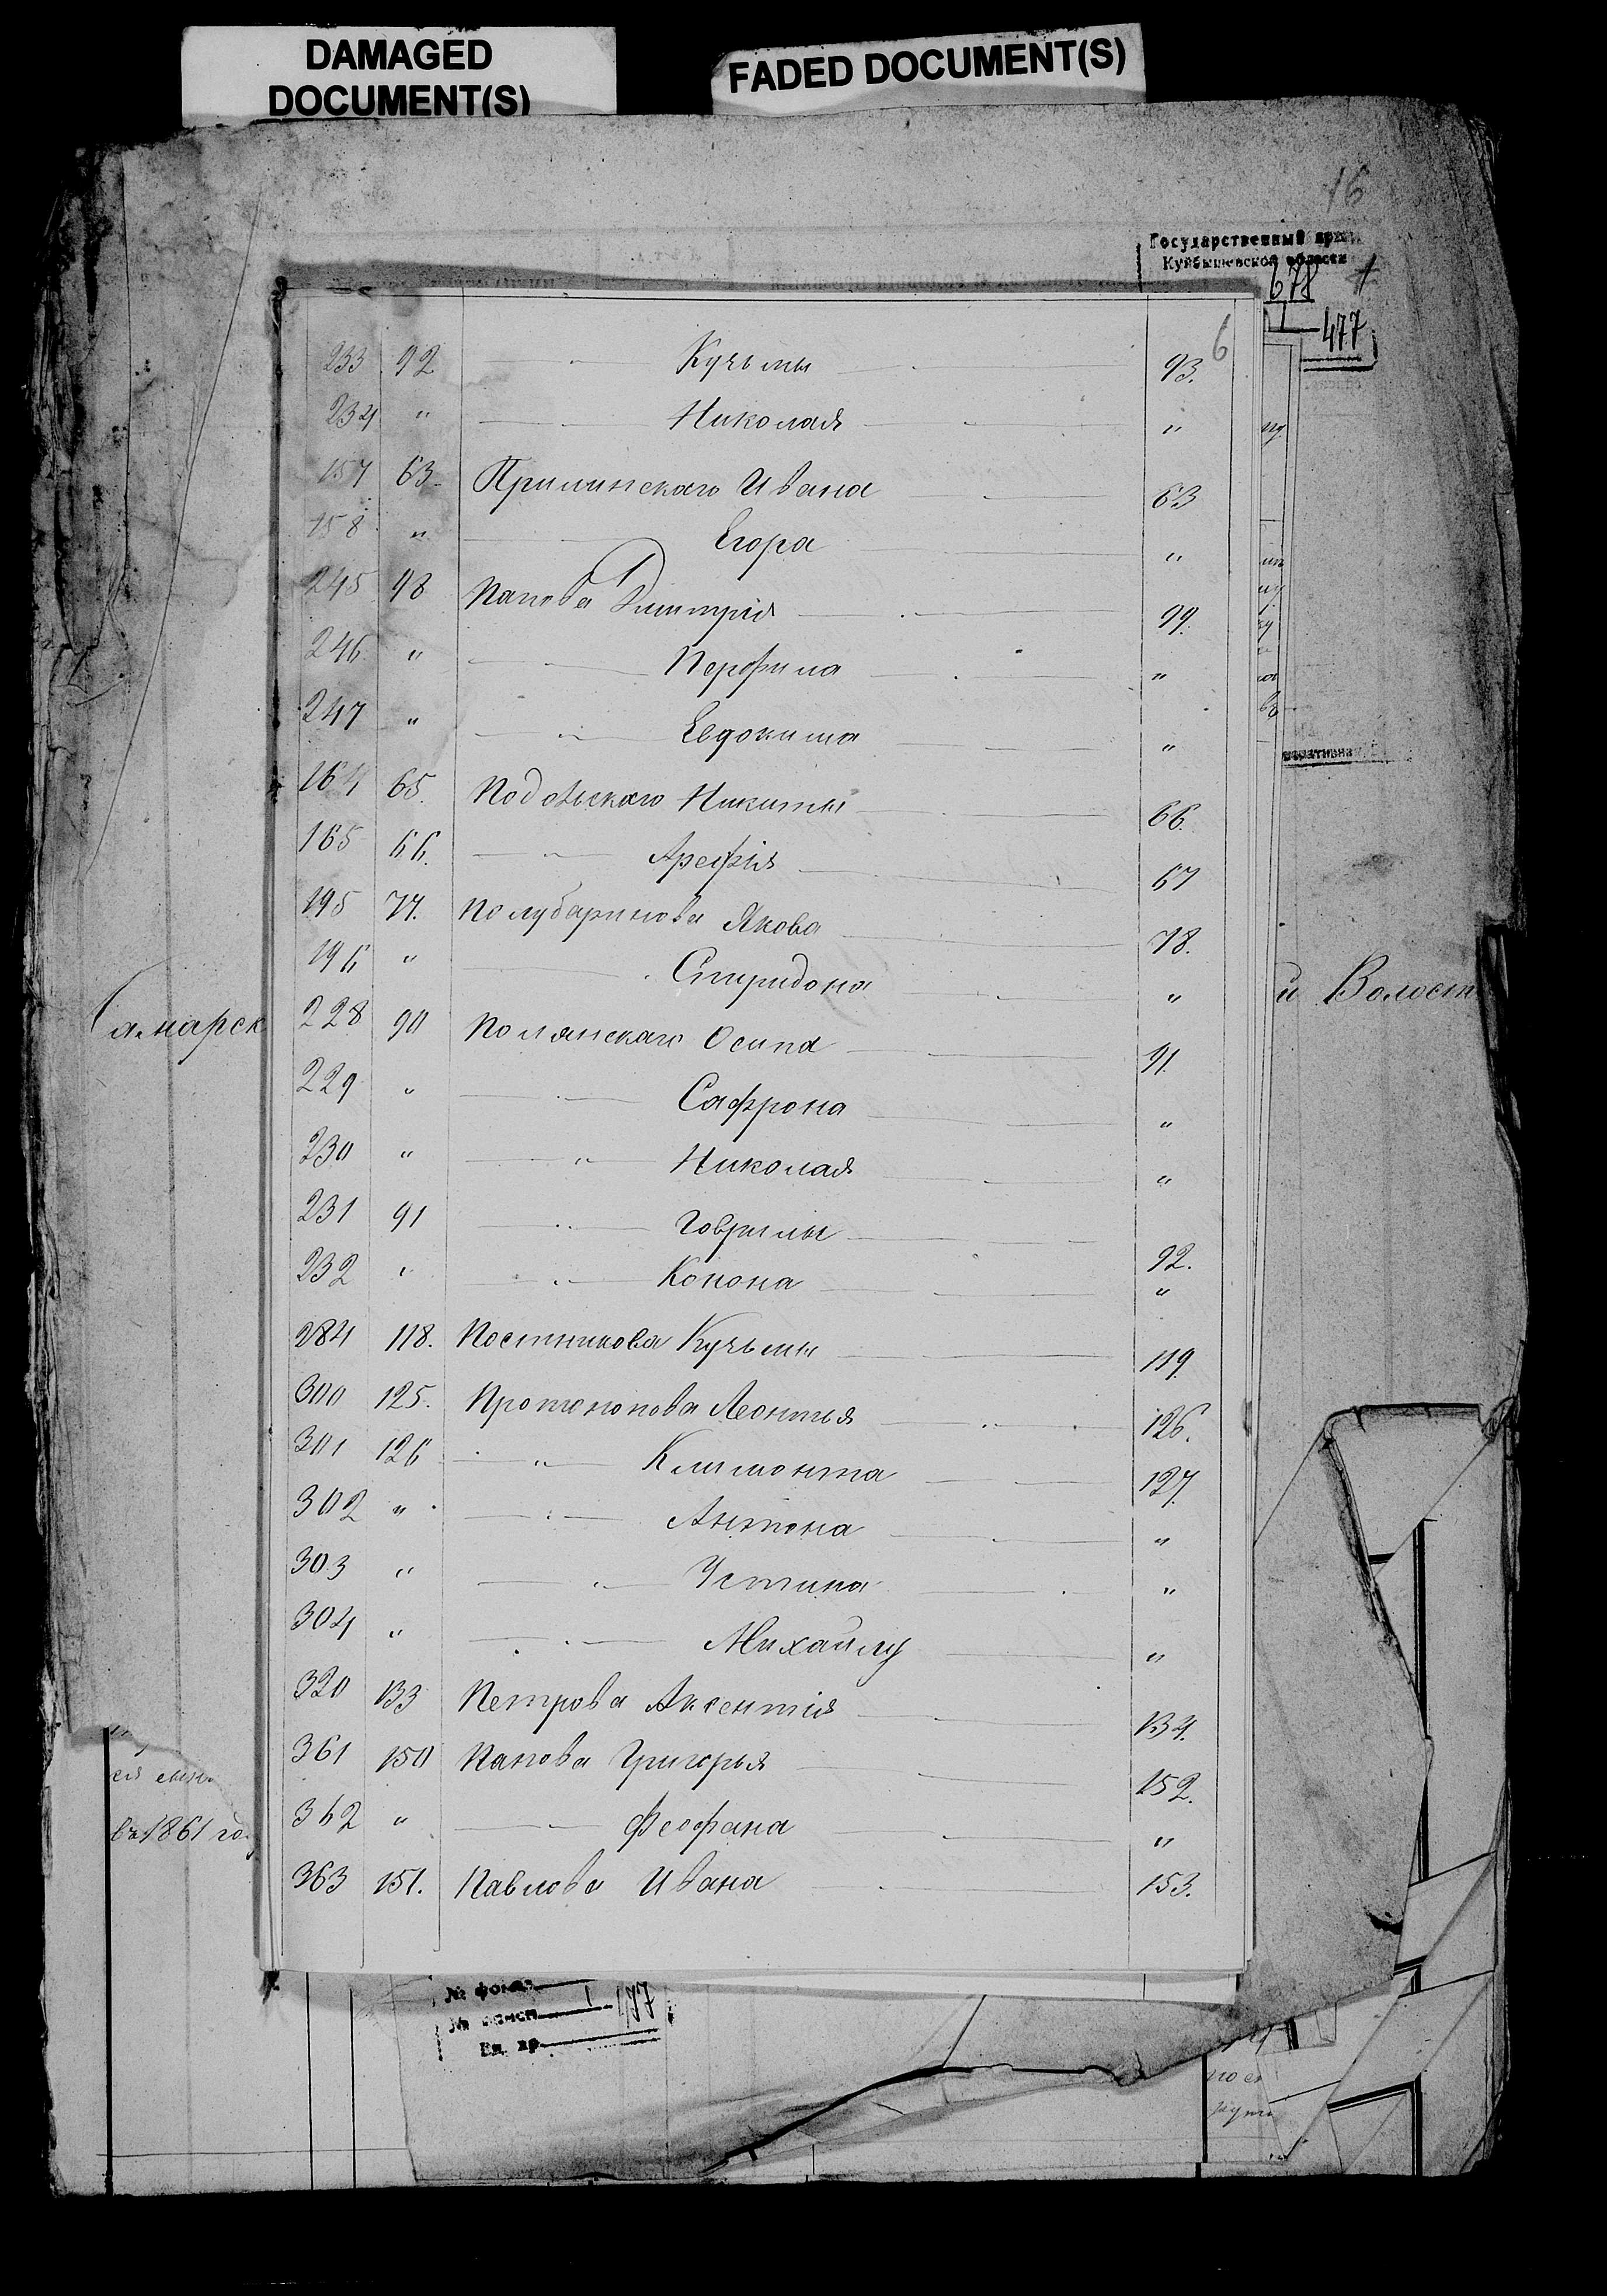 DAMAGED
DOCUMENT(S)
FADED DOCUMENT(S)
16
Государственный архи
Куйбышевской области
678 1
1 477
6
233 92 " Кузьмы 93.
234 " Николая "
157 63 Пришинскаго Ивана 63
158 " Егора "
245 98 Папова Дмитрія 99.
246 " Перфила "
247 " " Евдокима "
164 65. Подольскаго Никиты 66.
165 66. " Арефія 67
195 77. Полубаринова Якова 78.
196 " Спиридона "
228 90 Полянскаго Осипа 91.
229 " " Сафрона "
230 " " Николая "
231 91 " Гаврилы 92.
232 " " Конона "
284 118. Постникова Кузьмы 119
300 125. Протопопова Леонтья 126.
301 126 " Климонта 127.
302 " " Антона "
303 " " Устина "
304 " " Михайлу "
320 133 Петрова Аксентія 134.
361 150 Панова Григорья 152.
362 " " Феофана "
363 151. Павлова Ивана 153.
Самарск
й Волост
въ 1861 го
№ фонда
1 477
Ед. хр.